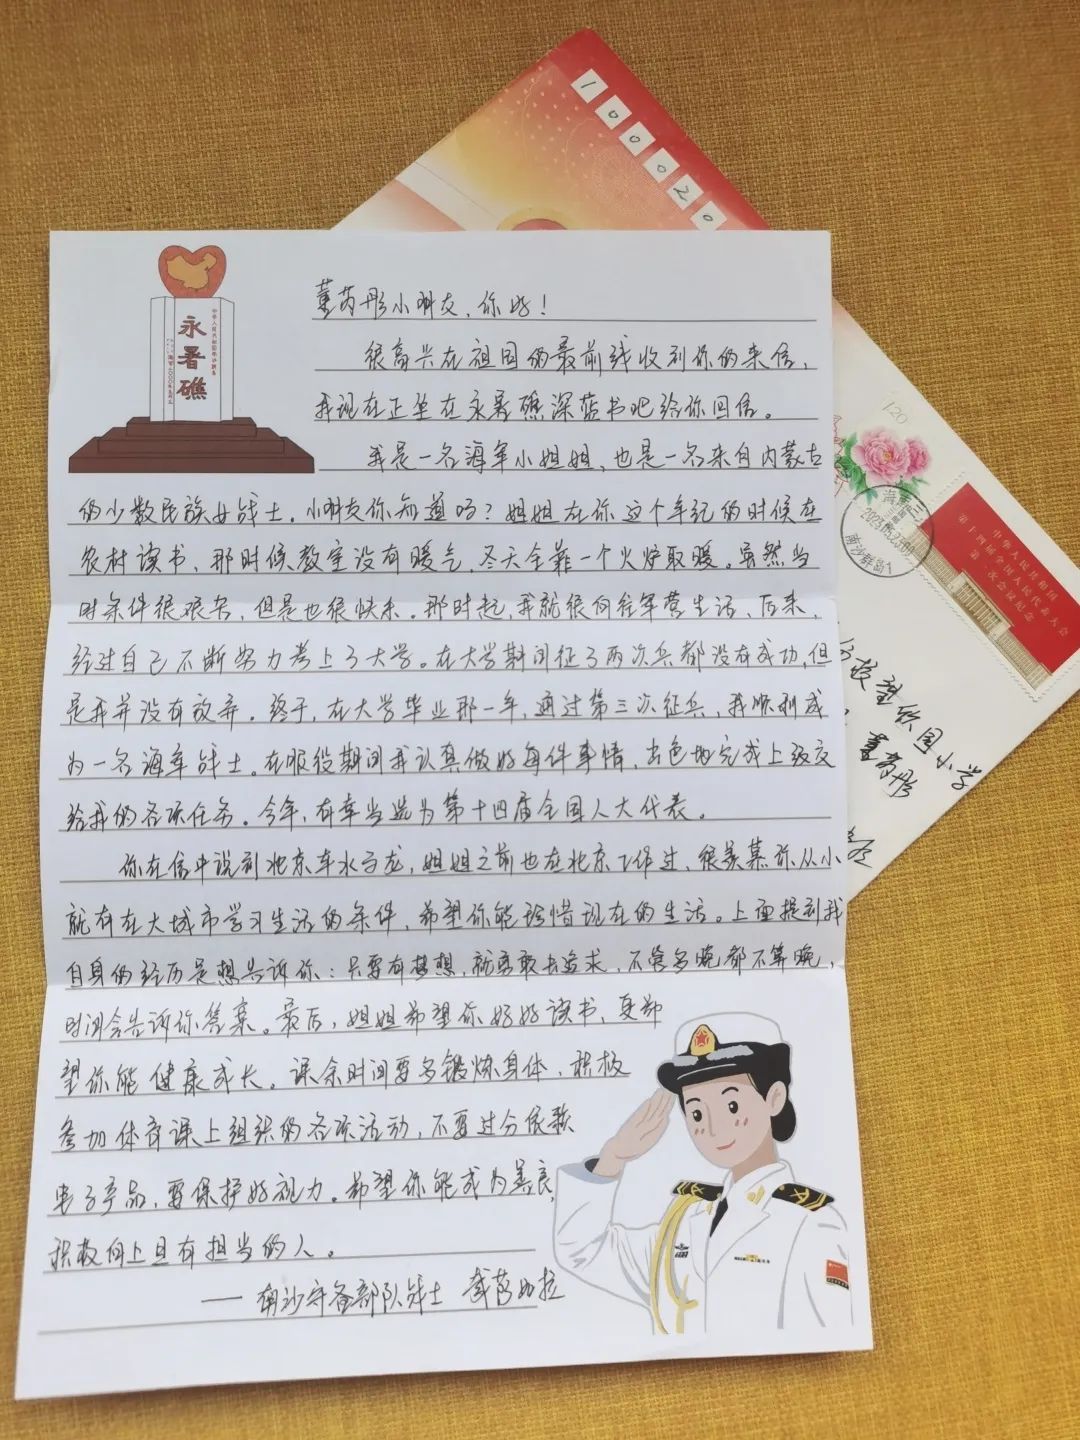 100020
永暑礁
董芮彤小朋友,你好!
很高兴在祖国的最前线收到你的来信,
我现在正坐在永暑礁深蓝书吧给你回信。
我是一名海军小姐姐,也是一名来自内蒙古
的少数民族女战士。小朋友你知道吗?姐姐在你这个年纪的时候在
农村读书,那时候教室没有暖气,冬天全靠一个火炉取暖。虽然当
时条件很艰苦,但是也很快乐。那时起,我就很向往军营生活,后来,
经过自己不断努力考上了大学。在大学期间征了两次兵都没有成功,但
是我并没有放弃。终于,在大学毕业那一年,通过第三次征兵,我顺利成
为一名海军战士。在服役期间我认真做好每件事情,出色地完成上级交
给我的各项任务。今年,有幸当选为第十四届全国人大代表。
你在信中说到北京车水马龙,姐姐之前也在北京工作过,很羡慕你从小
就有在大城市学习生活的条件,希望你能珍惜现在的生活。上面提到我
自身的经历是想告诉你:只要有梦想,就勇敢去追求,不管多晚都不算晚,
时间会告诉你答案。最后,姐姐希望你好好读书,更希
望你能健康成长。课余时间要多锻炼身体,积极
参加体育课上组织的各项活动,不要过分依赖
电子产品,要保护好视力。希望你能成为善良,
积极向上且有担当的人。
——南沙守备部队战士
120
海南三
2023.05.23.09
南沙群岛1
中华人民共和国
第十四届全国人民代表大会
第一次会议纪念
小学
董芮彤